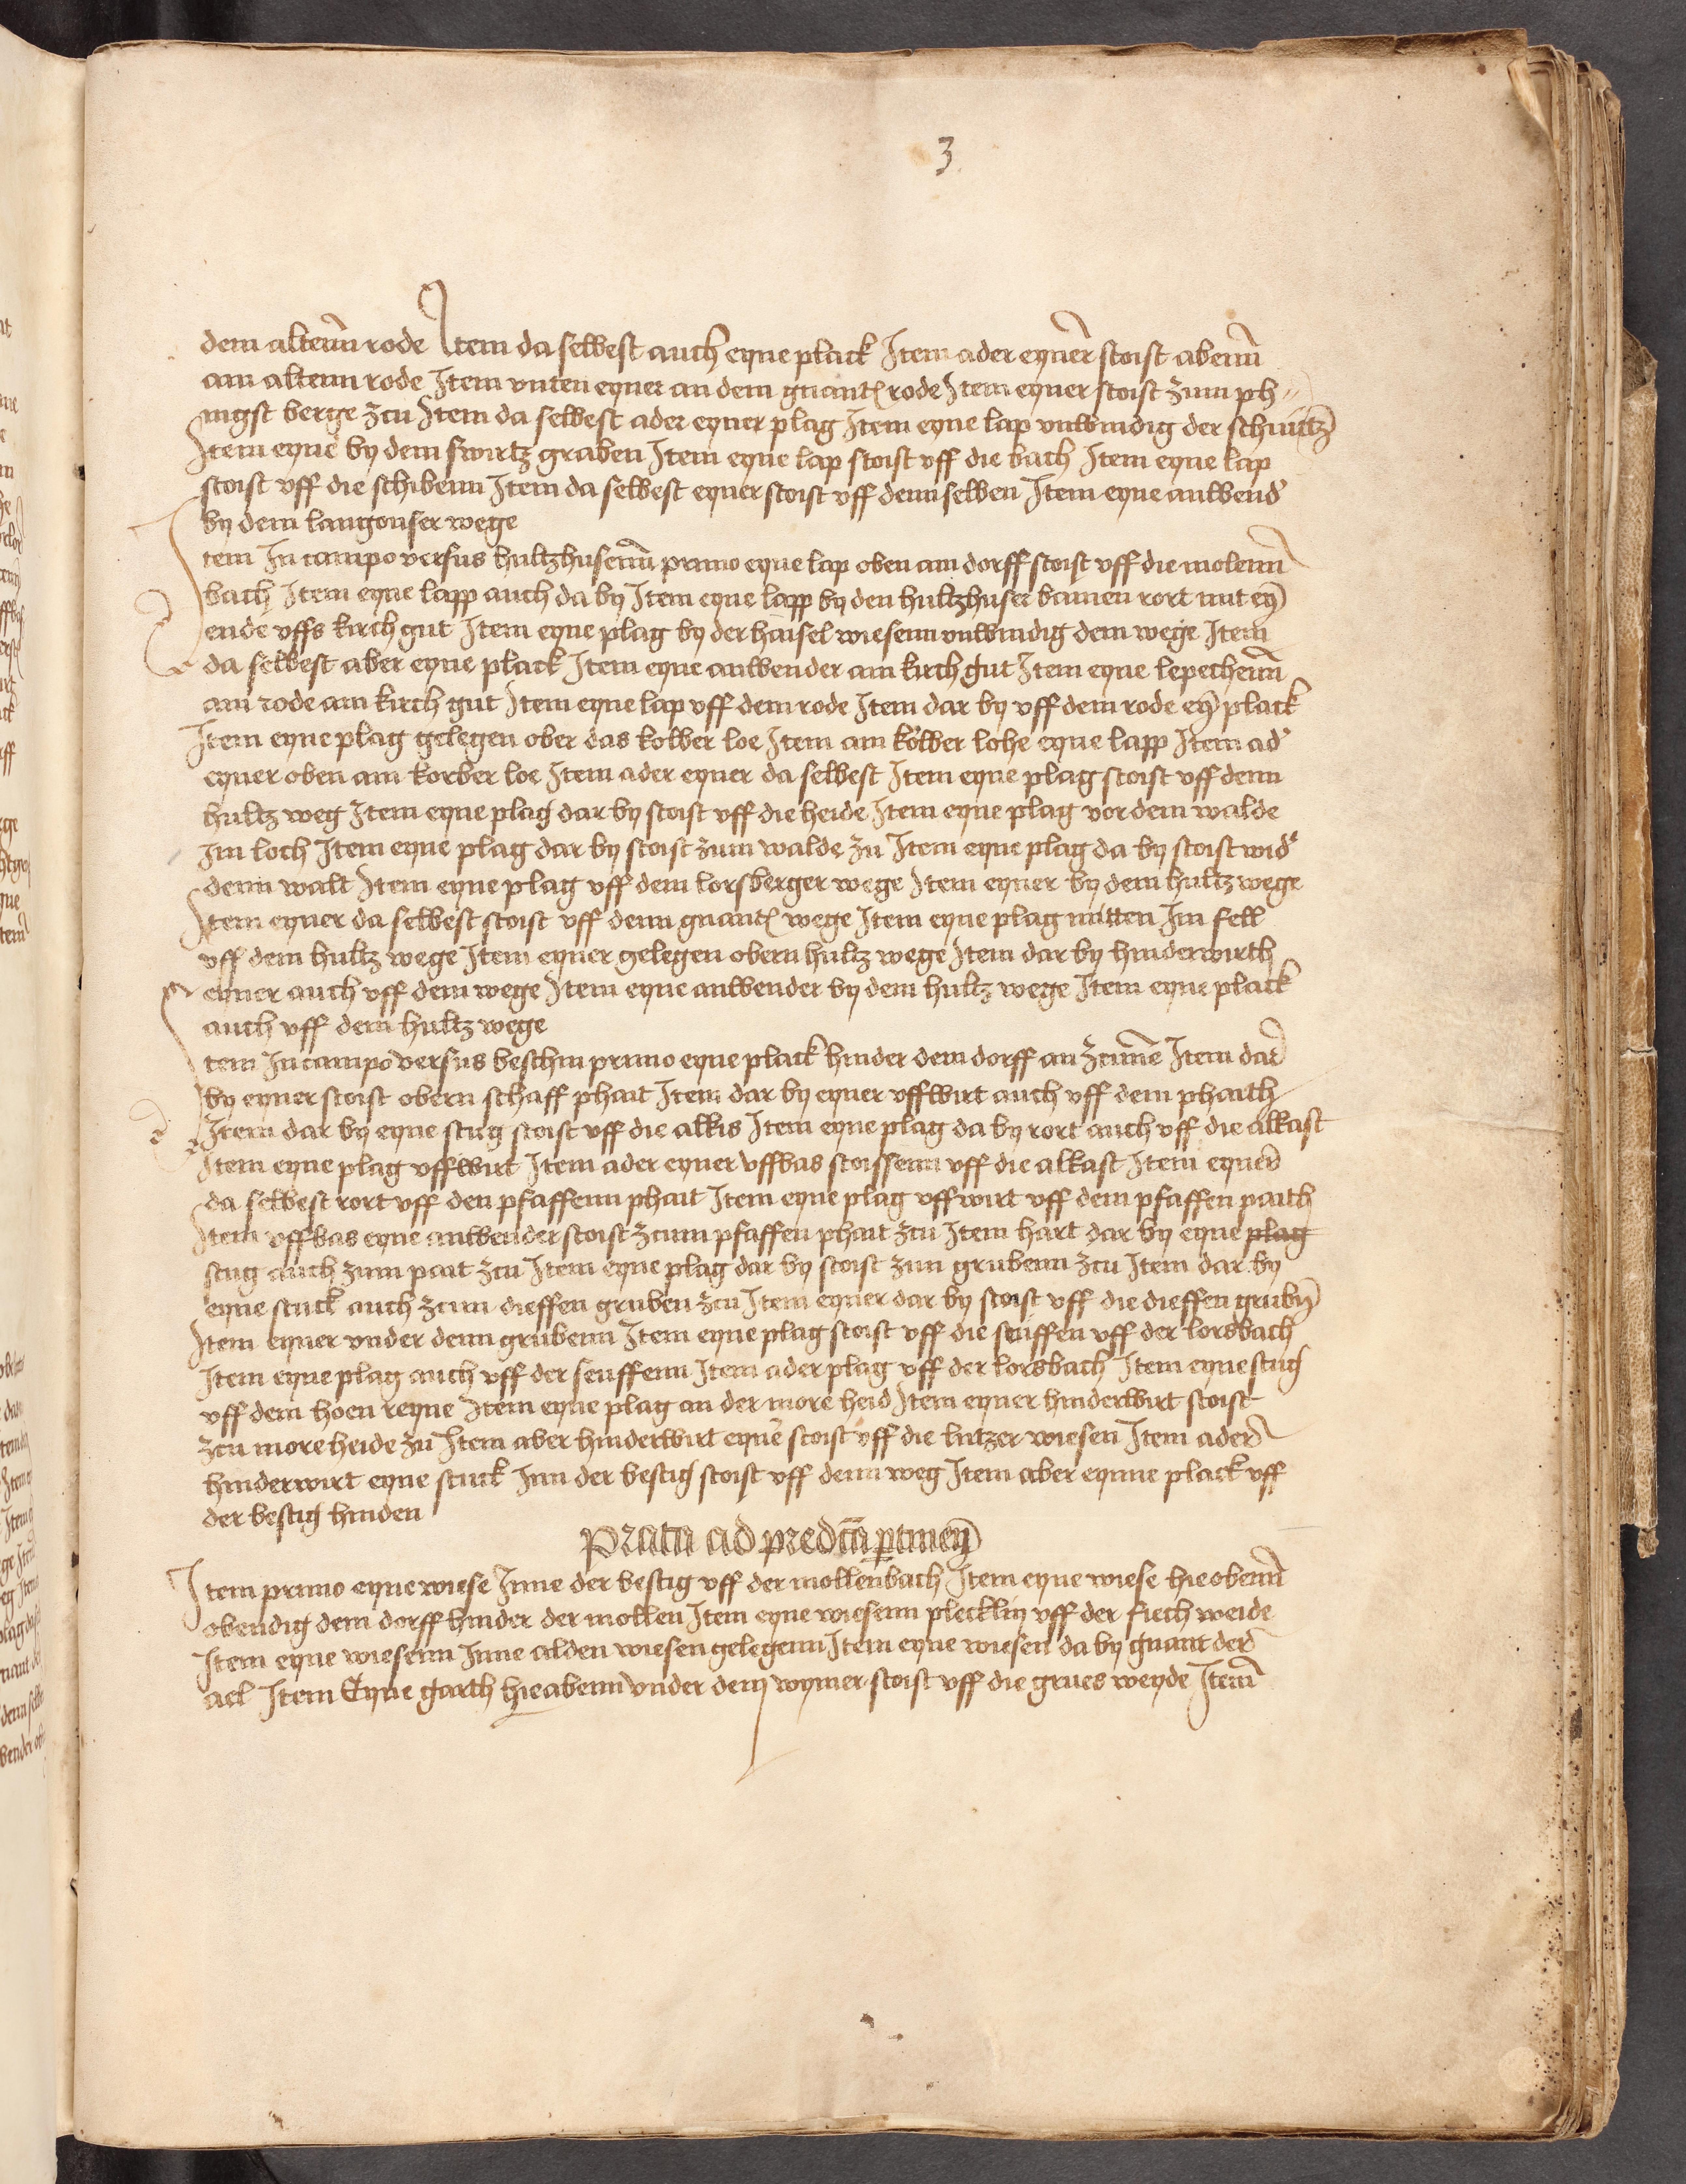 3
dem altenn̄ rode Item da selbest auch eyne plack Item ader eyner stoist abenn̄
am altenn rode Item vnten eyner an dem gnant rode Item eyner stoist zum ph〃
ingst berge zcu Item da selbest ader eyner plag Item eyne lap vnwindig der
Item eyne by dem swirtz graben Item eyne lap stoist vff die bach Item eyne lap
stoist vff die schibenn Item da selbest eyner stoist vff dennselben Item eyne anwend
by dem langonser wege
Item In campo versus hultzhusenn̄ primo eyne lap oben am dorff stoist vff die molenn̄
bach Item eyne lapp auch da by Item eyne lapp by den hultzhuser bamen rort mit ey̅
ende vffs kirch gut Item eyne plag by der haisel wiesenn vnwindig dem wege Item
da selbest aber eyne plack Item eyne anwender am kirch gut Item eyne lepechenn̄
am rode am kirch gut Item eyne lap vff dem rode Item dar by vff dem rode ey̅ plack
Item eyne plag gelegen ober das kolber loe Item am kolber lohe eyne lapp Item ad
eyner oben am korber loe Item ader eyner da selbest Item eyne plag stoist vff denn
hultz weg Item eyne plag dar by stoist vff die heide Item eyne plag vor dem walde
Im loch Item eyne plag dar by stoist zum walde zu Item eyne plag da by stoist wid
denn walt Item eyne plag vff dem lorsberger wege Item eyner by dem hultz wege
Item eyner da selbest stoist vff denn gnant wege Item eyne plag mitten Im fell
vff dem hultz wege Item eyner gelegen obern hultz wege Item dar by hinderwirth
eyner auch vff dem wege Item eyne anwender by dem hultz wege Item eyne plack
auch vff dem hultz wege
Item In campo versus beschin primo eyne plack hinder dem dorff an zcune Item dar
by eyner stoist obern schaff phait Item dar by eyner vffwirt auch vff dem phaith
Item dar by eyne stug stoist vff die alkis Item eyne plag da by rort auch vff die alkast
Item eyne plag vffwirt Item ader eyner vffbas stoissenn vff die alkast Item eyner
da selbest rort vff den pfaffenn phait Item eyne plag vffwirt vff dem pfaffen paith
Item vffbas eyne anwender stoist zcum pfaffen phait zcu Item hart dar by eyne plag
stug auch zum pait zcu Item eyne plag dar by stoist zun grubenn zcu Item dar by
eyne stuck auch zcun dieffen gruben zcu Item eyner dar by stoist vff die dieffen grub
Item eyner vnder denn grubenn Item eyne plag stoist vff die seuffen vff der lorsbach
Item eyne plag auch vff der seuffenn Item ader plag vff der lorsbach Item eyne stug
vff dem hoen reyne Item eyne plag an der more heid Item eyner hinderwirt stoist
zcu more heide zu Item aber hinderwirt eyne stoist vff die lutzer wiesen Item ader
hinderwirt eyne stuck Inn der bestig stoist vff denn weg Item aber eynne plack vff
der bestig hinden
Prata ad predicta ptinen̄
Item primo eyne wiese Inne der bestig vff der mollenbach Item eyne wiese hie obenn̄
obendig dem dorff hinder der mollen Item eyne wiesenn plecklin vff der fiech weide
Item eyne wiesenn Inne alden wiesen gelegenn Item eyne wiesen da by gnant der
ael Item Eyne garth hieabenn vnder dem wymer stoist vff die grues weyde Item